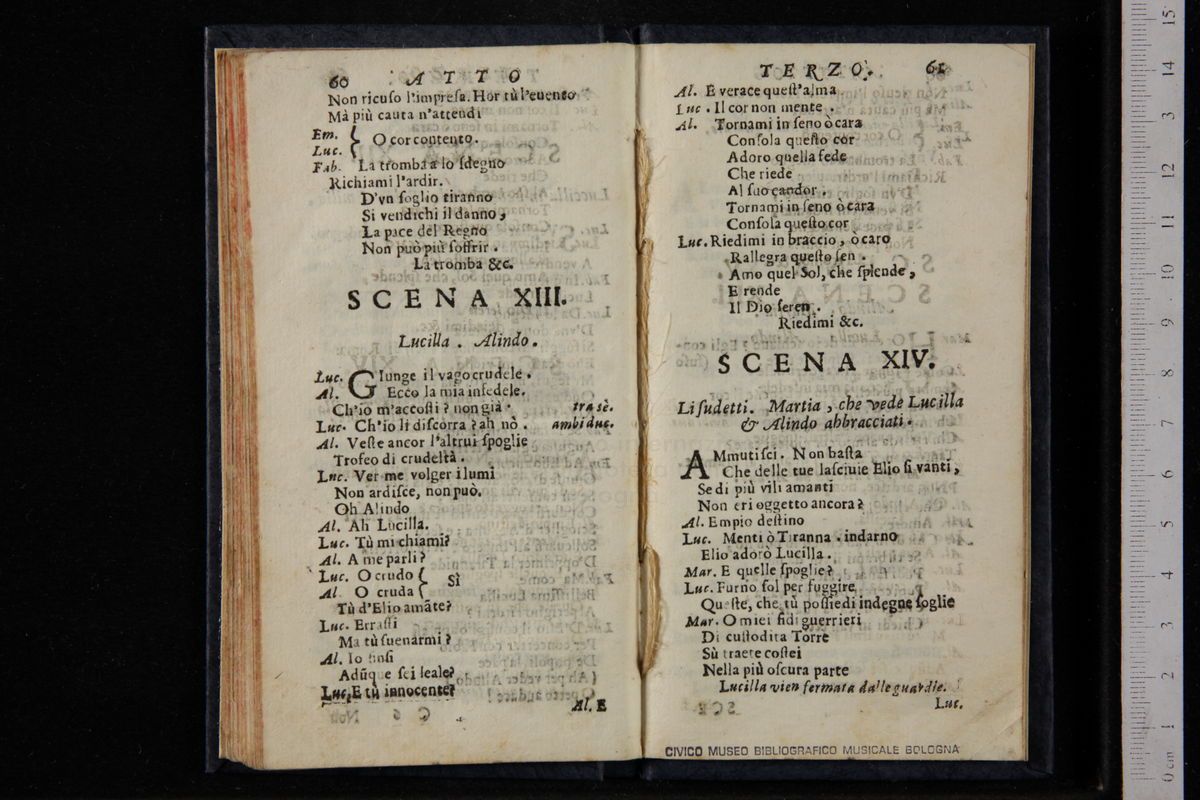 60 ATTO
Non ricuso l'impresa. Hor tù l'euento
Mà più cauta n'attendi
Em. {
Luc. { O cor contento.
Fab. La tromba a lo sdegno
Richiami l'ardir.
D'vn soglio tiranno
Si vendichi il danno,
La pace del Regno
Non può più soffrir.
La tromba &c.
SCENA XIII.
Lucilla. Alindo.
Luc. Giunge il vago crudele.
Al. Ecco la mia infedele.
Ch'io m'accosti? non già. tra sè.
Luc. Ch'io li discorra? ah nò. ambi due.
Al. Veste ancor l'altrui spoglie
Trofeo di crudeltà.
Luc. Ver me volger i lumi
Non ardisce, non può.
Oh Alindo
Al. Ah Lucilla.
Luc. Tù mi chiami?
Al. A me parli?
Luc. O crudo {
Al. O cruda { Sì
Tù d'Elio amāte?
Luc. Errasti
Ma tù suenarmi?
Al. Io finsi
Adūque sei leale?
Luc. E tù innocente?
Al. E
TERZO. 61
Al. E verace quest'alma
Luc. Il cor non mente.
Al. Tornami in seno ò cara
Consola questo cor
Adoro quella fede
Che riede
Al suo candor.
Tornami in seno ò cara
Consola questo cor
Luc. Riedimi in braccio, ò caro
Rallegra questo sen.
Amo quel Sol, che splende,
E rende
Il Dìo seren.
Riedimi &c.
SCENA XIV.
Li sudetti. Martia, che vede Lucilla
& Alindo abbracciati.
AMmutisci. Non basta
Che delle tue lasciuie Elio si vanti,
Se di più vili amanti
Non eri oggetto ancora?
Al. Empio destino
Luc. Menti ò Tiranna. indarno
Elio adorò Lucilla.
Mar. E quelle spoglie?
Luc. Furno sol per fuggire
Queste, che tù possiedi indegne soglie
Mar. O miei fidi guerrieri
Di custodita Torre
Sù traete costei
Nella più oscura parte
Lucilla vien fermata dalle guardie.
Luc.
CIVICO MUSEO BIBLIOGRAFICO MUSICALE BOLOGNA
0 cm 1 2 3 4 5 6 7 8 9 10 11 12 13 14 15